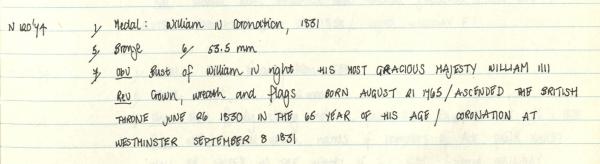 N 120'74 1/ Medal: William IV Coronation, 1831
5/ Bronze 6/ 53.5 mm
7/ Obv Bust of William IV right HIS MOST GRACIOUS MAJESTY WILLIAM IIII
Rev Crown, wreath and flags BORN AUGUST 21 1765/ASCENDED THE BRITISH
THRONE JUNE 26 1830 IN THE 65 YEAR OF HIS AGE/ CORONATION AT
WESTMINSTER SEPTEMBER 8 1831